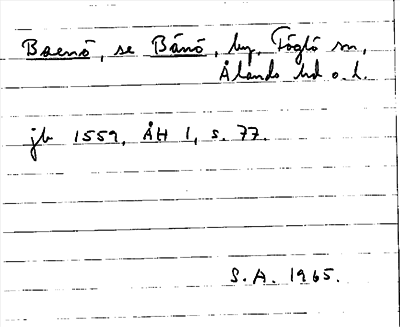 Baenö, se Bänö, by, Föglö sn,
Ålands hd o. l.
jb 1559, ÅH 1, s. 77.
S.A. 1965.